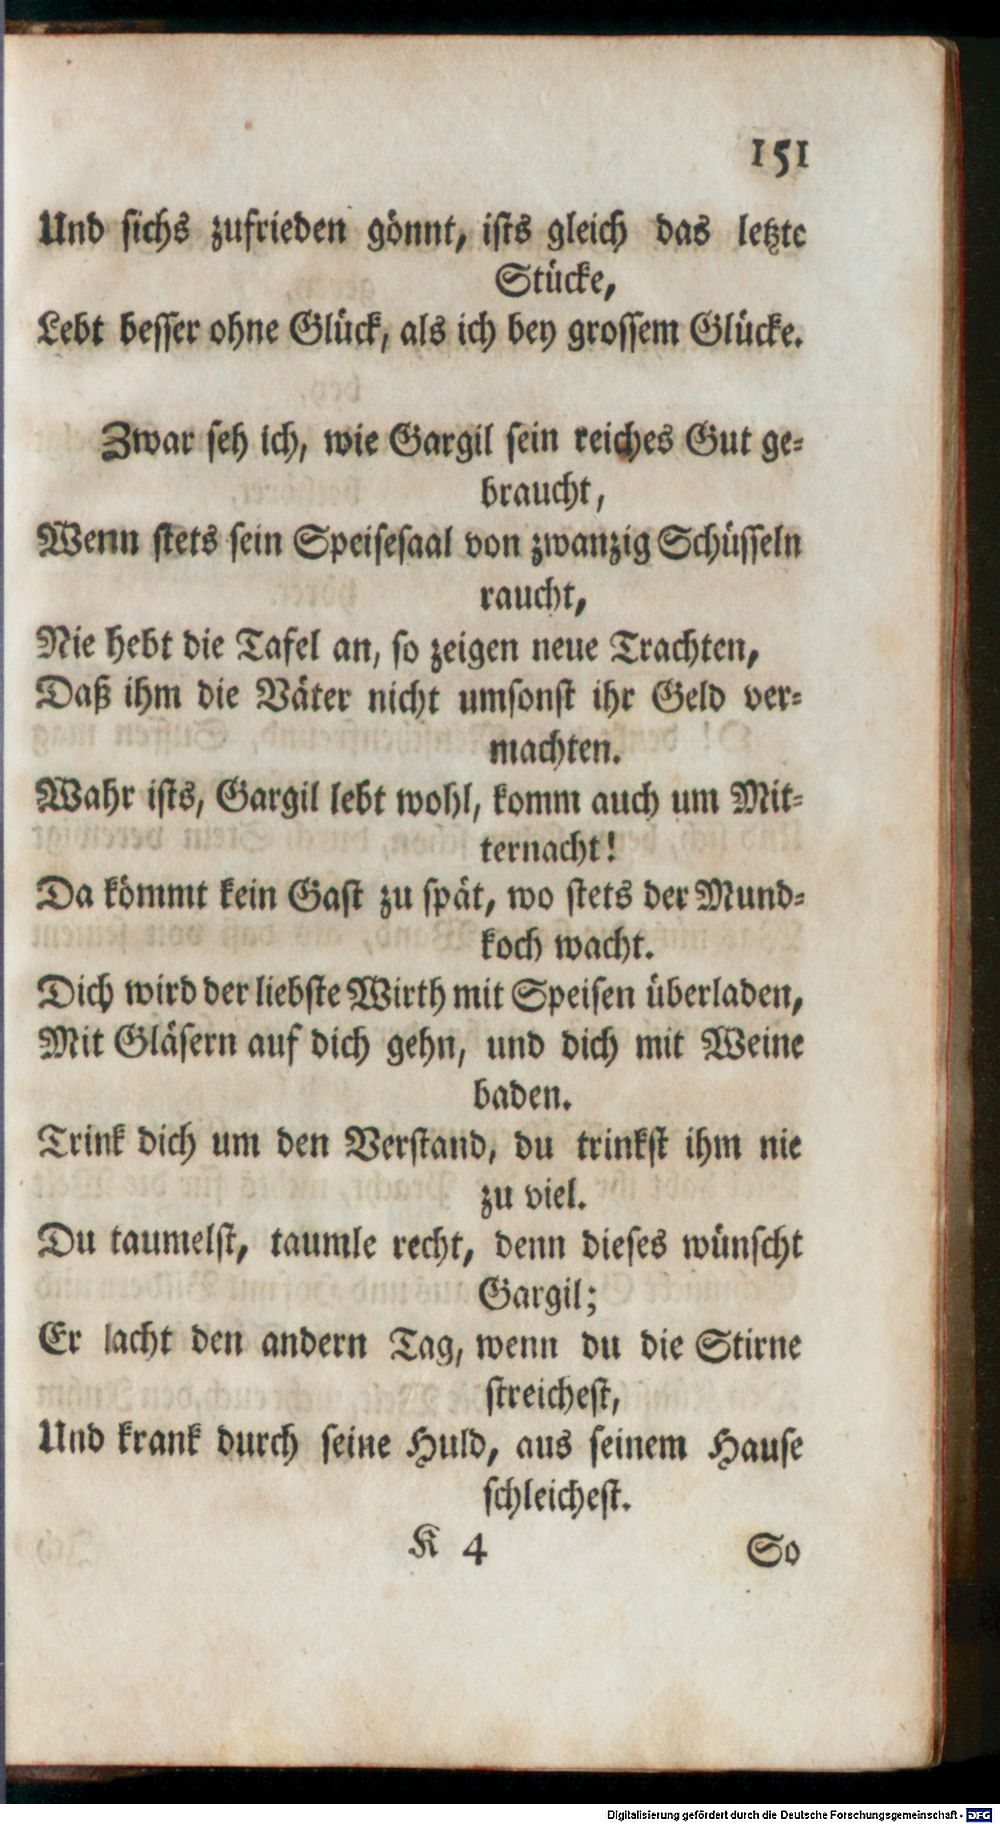 151
Und sichs zufrieden gönnt, ists gleich das letzte
Stücke,
Lebt besser ohne Glück, als ich bey grossem Glücke.
Zwar seh ich, wie Gargil sein reiches Gut ge-
braucht,
Wenn stets sein Speisesaal von zwanzig Schüsseln
raucht,
Nie hebt die Tafel an, so zeigen neue Trachten,
Daß ihm die Väter nicht umsonst ihr Geld ver-
machten.
Wahr ists, Gargil lebt wohl, komm auch um Mit-
ternacht!
Da kömmt kein Gast zu spät, wo stets der Mund-
koch wacht.
Dich wird der liebste Wirth mit Speisen überladen,
Mit Gläsern auf dich gehn, und dich mit Weine
baden.
Trink dich um den Verstand, du trinkst ihm nie
zu viel.
Du taumelst, taumle recht, denn dieses wünscht
Gargil;
Er lacht den andern Tag, wenn du die Stirne
streichest,
Und krank durch seine Huld, aus seinem Hause
schleichest.
K 4 So
Digitalisierung gefördert durch die Deutsche Forschungsgemeinschaft - DFG